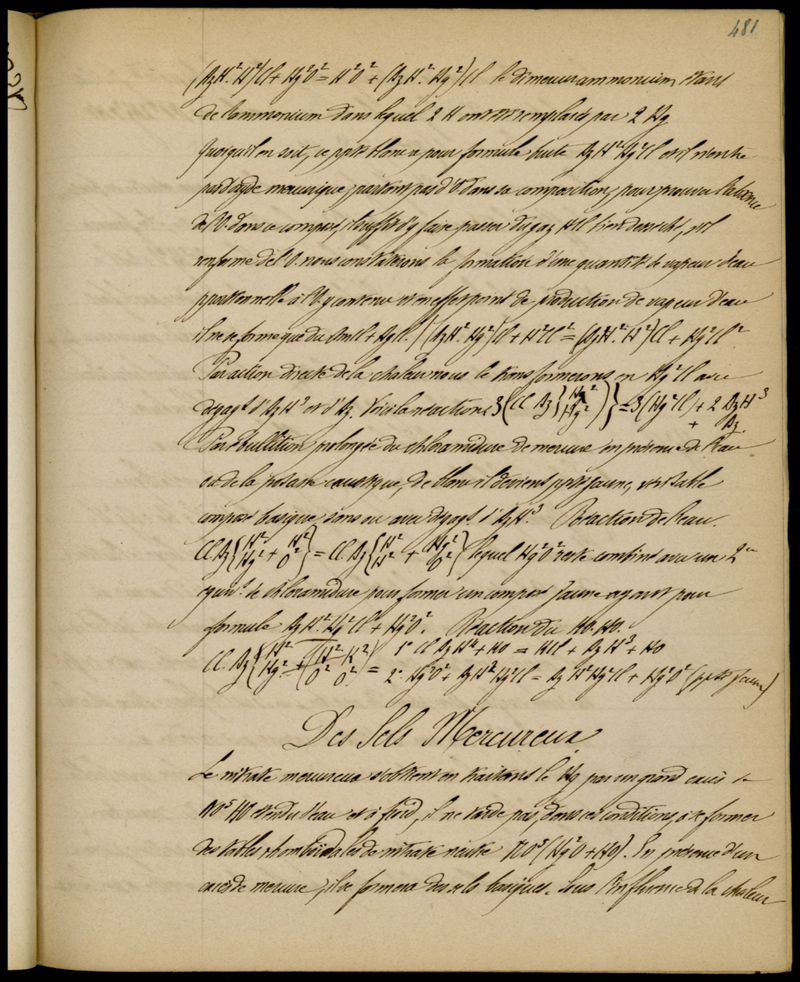 481
(AzH².H²)Cl + Hg²O² = H²O² + (AzH².Hg²)Cl le dimercurammonium étant
de l'ammonium dans lequel 2 H ont été remplacés par 2 Hg
Quoiqu'il en soit, ce ppté blanc a pour formule brute AzH²Hg²Cl et il n'entre
pas d'oxyde mercurique, partant pas d'O dans sa composition, pour prouver l'absence
de l'O. dans ce composé, il suffit d'y faire passer du gaz HCl bien desséché, s'il
renferme de l'O. nous constaterons la formation d'une quantité de vapeur d'eau
pportionnelle à l'O y contenu et en effet point de production de vapeur d'eau
il ne se forme que du AmCl + HgCl. (AzH².Hg²)Cl + H²Cl² = (AzH².H²)Cl + Hg²Cl²
Par action directe de la chaleur nous le transformerons en Hg²Cl avec
dégagt d'AzH³ et d'Az. Voici la réaction : 3(Cl Az{H² Hg²)} = 3(Hg²Cl) + 2 AzH³
+ Az.
Par ébullition prolongée du chloramidure de mercure en présence de l'eau
ou de la potasse caustique, de blanc il devient ppté jaune, véritable
composé basique, sans ou avec dégagt d'AzH³. Réaction de l'eau.
Cl Az{H² Hg² + H² O²} = Cl Az{H² H² + Hg² O²} lequel Hg²O² reste combiné avec un 2e
équivt de chloramidure pour former un composé jaune ayant pour
formule AzH²Hg²Cl + Hg²O². Réaction du KO.HO.
Cl. Az{H² Hg² + (H² K² O² O²) = 1° Cl AzH⁴ + HO = HCl + AzH³ + HO
2° Hg²O² + AzH²Hg²Cl = AzH²Hg²Cl + Hg²O² (ppté jaune)
Des Sels Mercureux
Le nitrate mercureux s'obtient en traitant le Hg par un grand excès de
NO⁵HO étendu d'eau et à froid, il ne tarde pas, dans ces conditions à se former
des tables rhomboïdales de nitrate neutre NO⁵(Hg²O + HO). En présence d'un
excès de mercure, il se formera des sels basiques. Sous l'influence de la chaleur